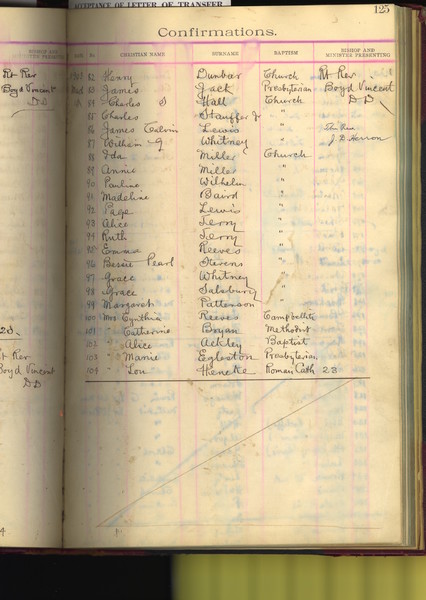 ACCEPTANCE OF LETTER OF TRANSFER
125
Confirmations.
BISHOP AND MINISTER PRESENTING
No. CHRISTIAN NAME SURNAME BAPTISM BISHOP AND MINISTER PRESENTING
Rt Rev
Boyd Vincent
DD
82 Henry Dunbar Church Rt Rev
83 James Jack Presbyterian Boyd Vincent
84 Charles S Hall Church DD
85 Charles Stauffer Jr "
86 James Calvin Lewis "
87 Whitney " J D Herron
88 Ida Miller Church
89 Annie Miller "
90 Pauline Wilhelm "
91 Madeline Baird "
92 Page Lewis "
93 Alice Terry "
94 Ruth Terry "
95 Emma Reeves "
96 Bessie Pearl Stevens "
97 Grace Whitney "
98 Grace Salsbury "
99 Margaret Patterson "
100 Mrs Cynthia Reeves Campbellite
101 " Catherine Bryan Methodist
102 " Alice Ackley Baptist
103 " Marie Egleston Presbyterian
104 " Lou Roman Cath 23
Rt Rev
Boyd Vincent
DD